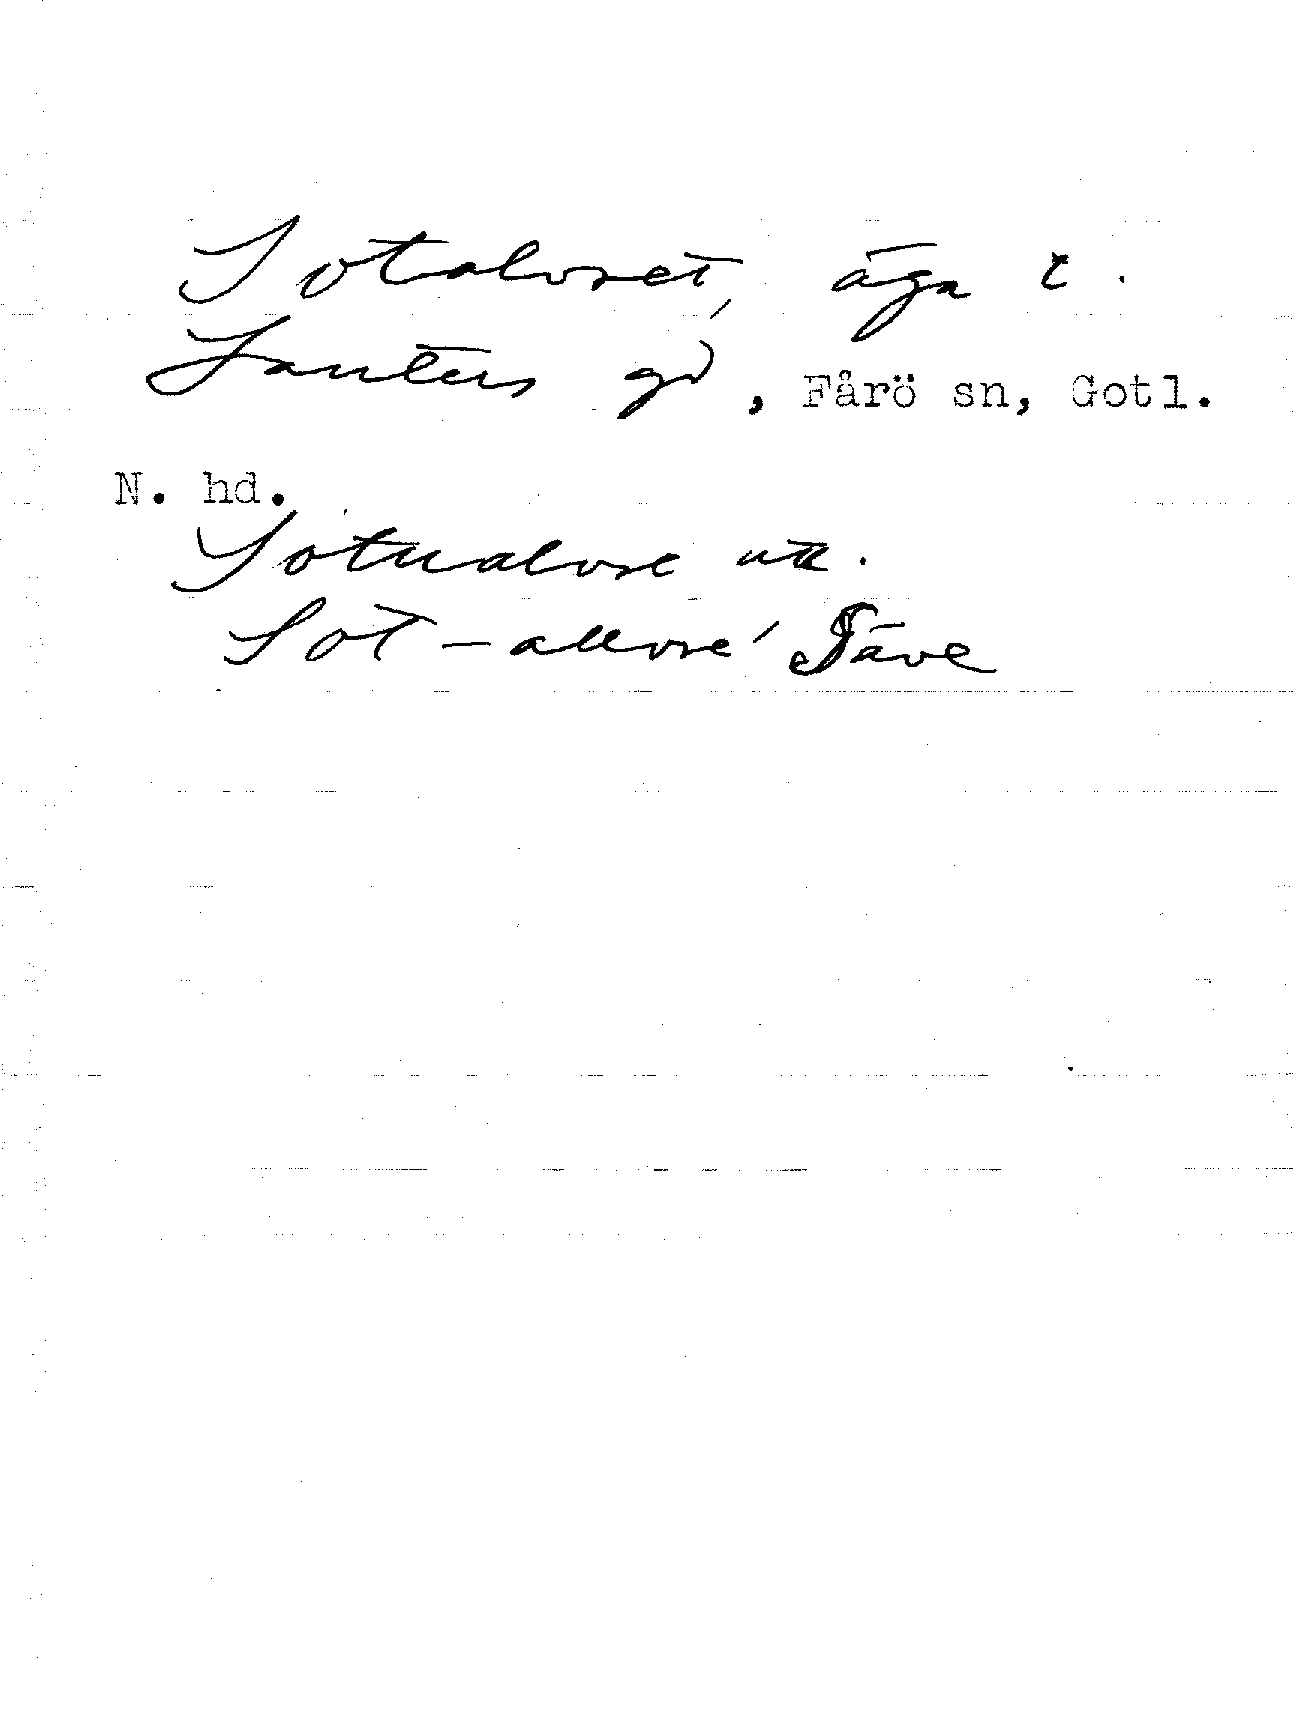 Sotalvret, äga i
Lauters gd, Fårö sn, Gotl.
N. hd.
Sotualvre utt.
Sot-allvre' Täve